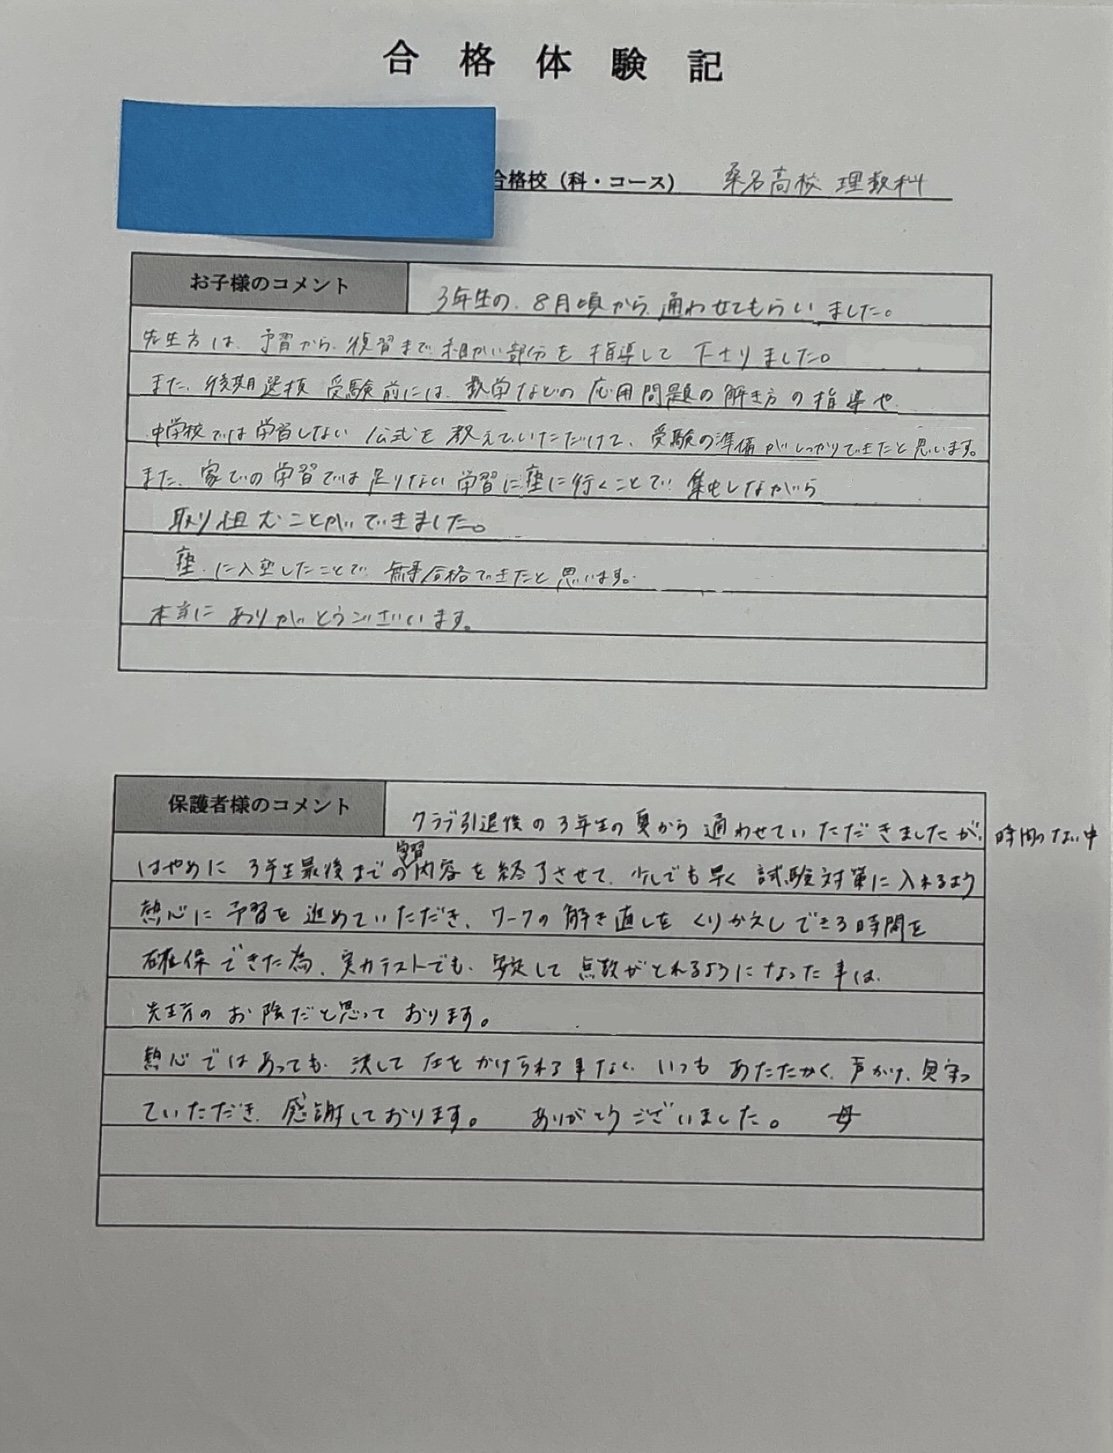 合格体験記
合格校（科・コース） 桑名高校 理数科
お子様のコメント
3年生の、8月頃から、通わせてもらいました。
先生方は、予習から、復習まで、細かい部分を指導して下さりました。
また、後期選抜 受験前には、数学などの応用問題の解き方の指導や、
中学校では学習しない公式を教えていただけて、受験の準備がしっかりできたと思います。
また、家での学習では足りない学習に塾に行くことで、集中しながら
取り組むことができました。
塾に入塾したことで、無事合格できたと思います。
本当にありがとうございます。
保護者様のコメント
クラブ引退後の3年生の夏から通わせていただきましたが、時間のない中
はやめに3年生最後までの学習内容を終了させて、少しでも早く試験対策に入れるよう
熱心に予習を進めていただき、ワークの解き直しをくりかえしできる時間を
確保できた為、実力テストでも、安定して点数がとれるようになった事は、
先生方のお陰だと思っております。
熱心ではあっても、決して圧をかけられる事なく、いつもあたたかく、声がけ、見守っ
ていただき、感謝しております。 ありがとうございました。 母